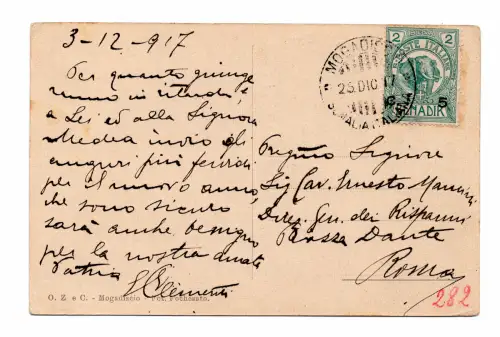 3-12-917
Per quanto giunge
ranno in ritardo,
a Lei ed alla Signora
Medea invio gli
auguri più fervidi
per il nuovo anno,
che sono sicuro
sarà anche benigno
per la nostra amata
Patria
Clementi
O. Z e C. - Mogadiscio - Fot. Fothisato.
MOGADISCIO
25 DIC 17
SOMALIA ITALIANA
2 POSTE ITALIANE 2
C. 5
BENADIR
Pregmo Signore
Sig Cav. Ernesto Mancini
Direz. Gen. dei Risparmi
Piazza Dante
Roma
282